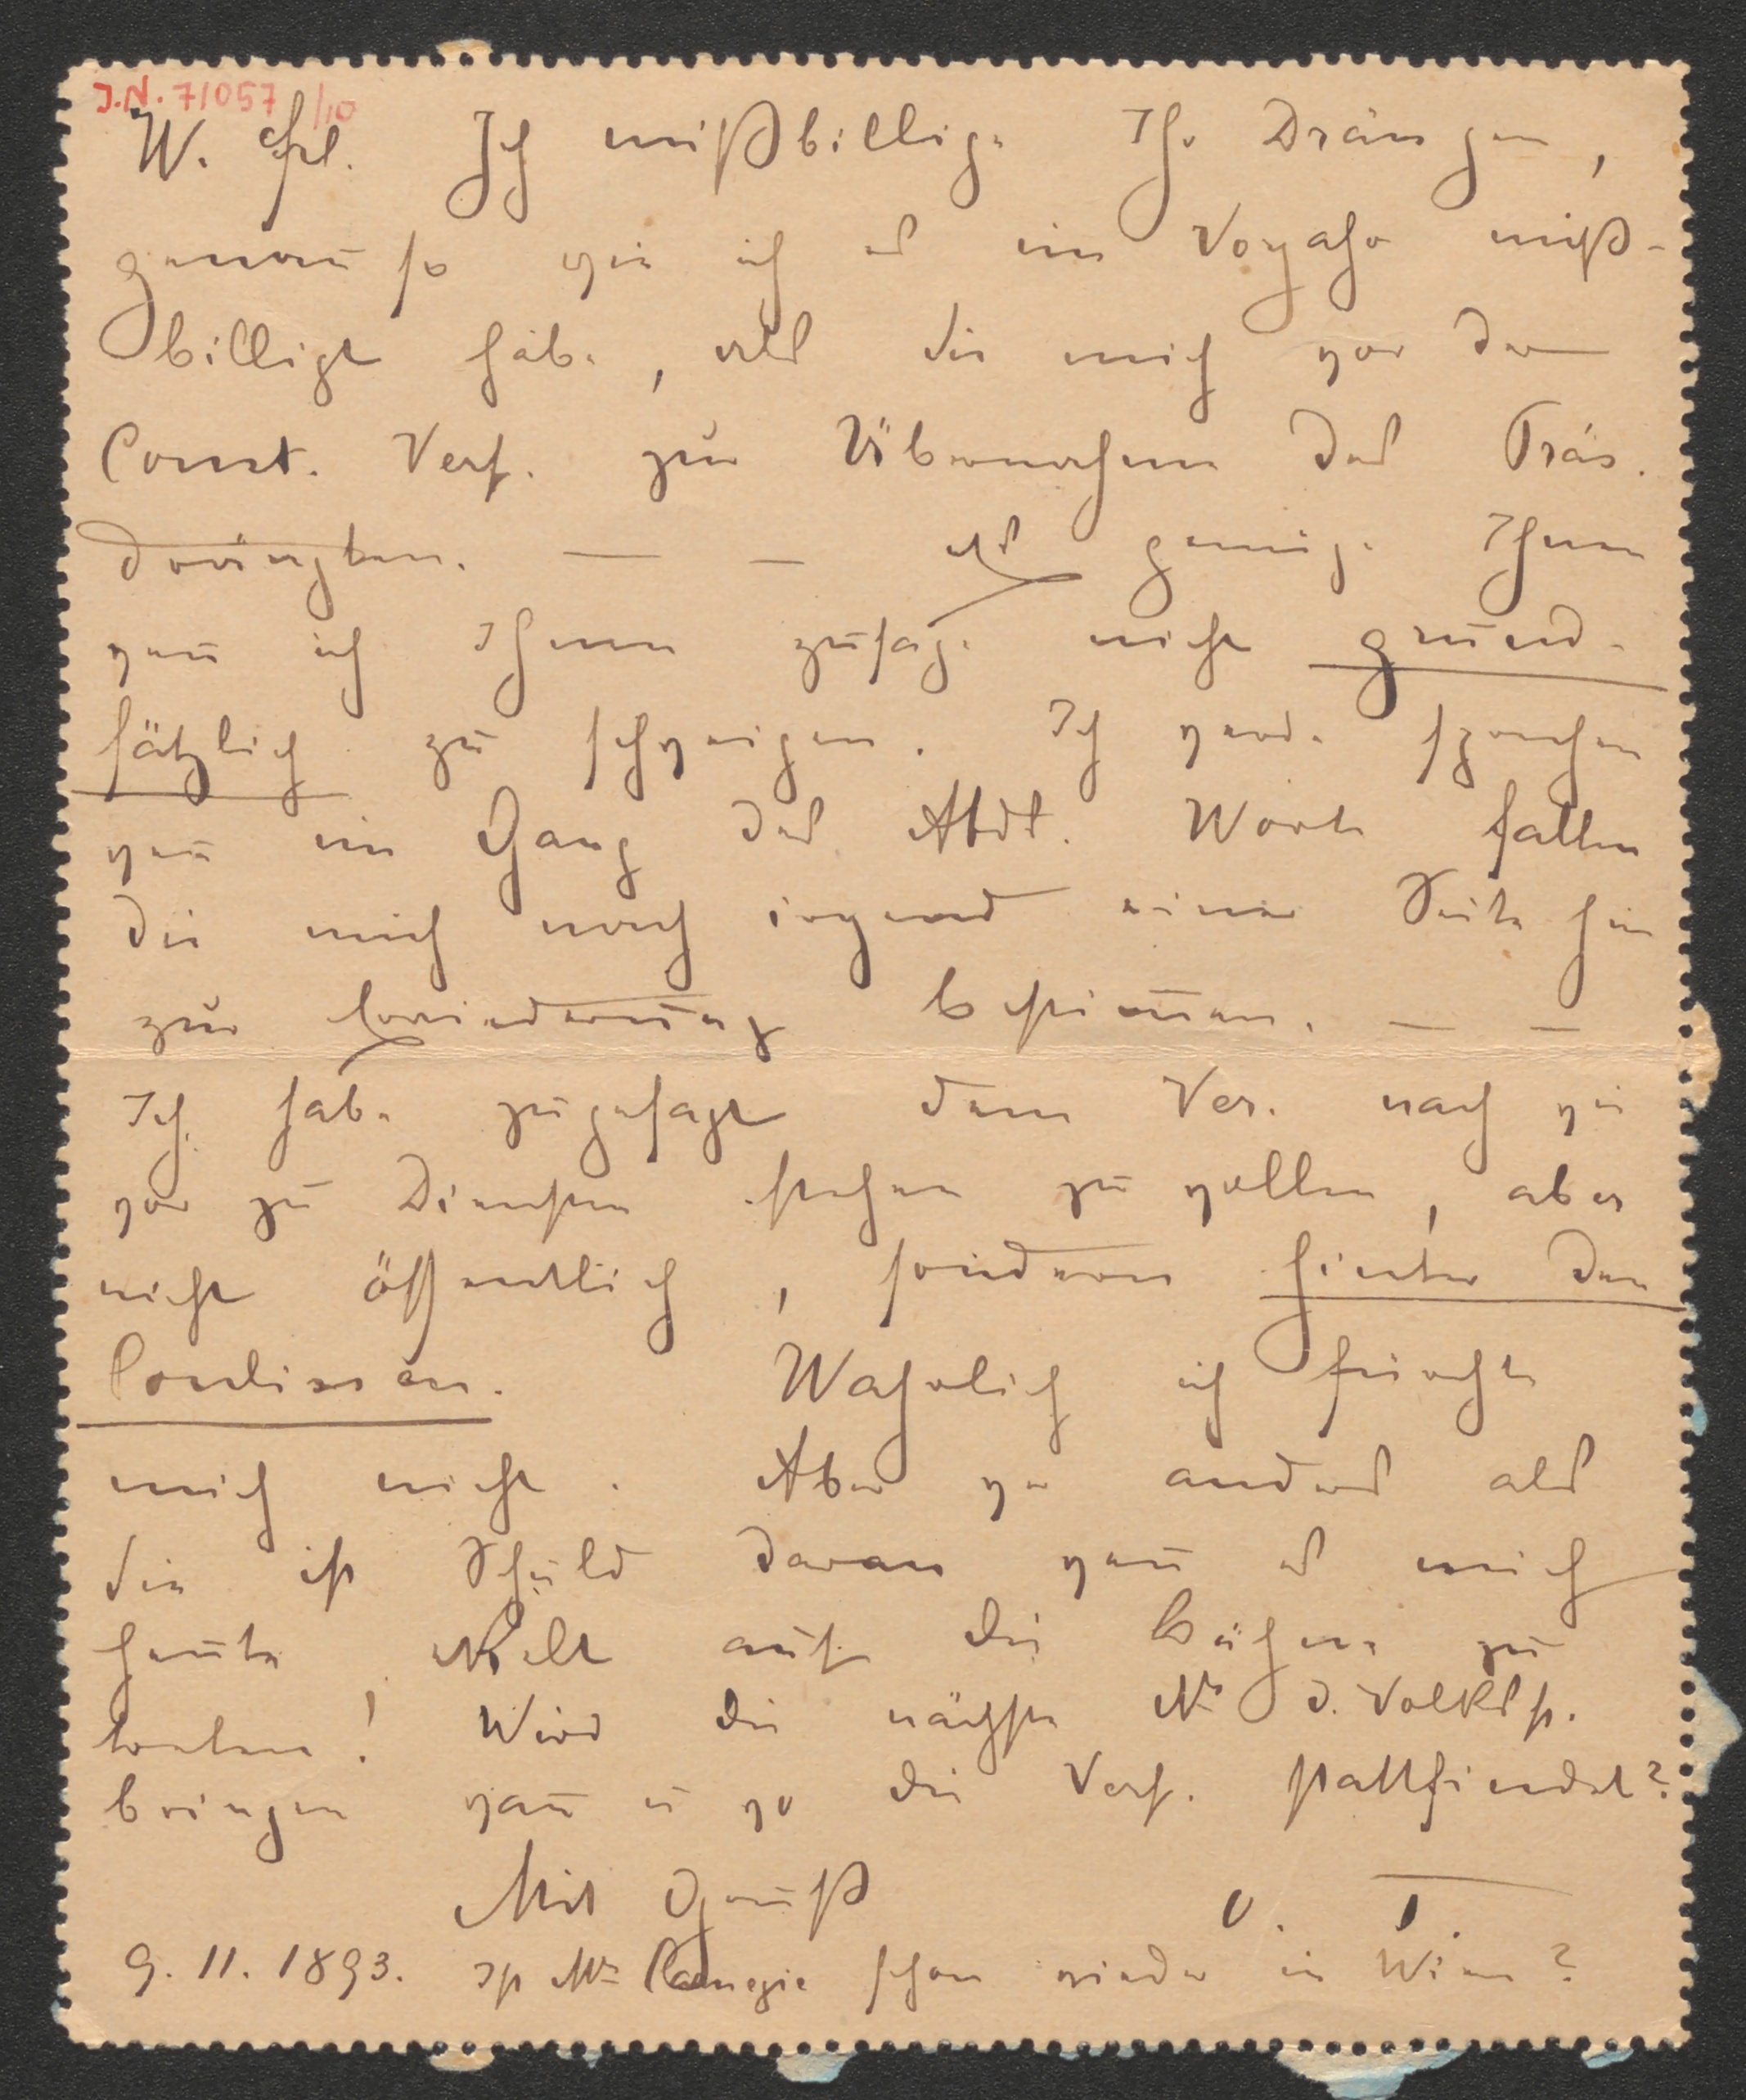 J.N. 71057/10
W. Frl. Ich mißbillige Ihr Drängen,
genau so wie ich es im Vorjahr miß-
billigt habe, als Sie mich vor der
Const. Vers. zur Übernahme des Präs.
drängten. — — Es genüge Ihnen
wenn ich Ihnen zusage nicht grund-
sätzlich zu schweigen. Ich werde sprechen
wenn im Gang der Worte fallen
die mich nach irgend einer Seite hin
zur Erwiderung bestimmen. — —
Ich habe zugesagt dem Ver. nach wie
vor zu Diensten stehen zu wollen, aber
nicht öffentlich, sondern hinter den
Coulissen. Wahrlich ich fürchte
mich nicht. Aber wer anders als
Sie ist Schuld daran wenn es mich
heute auf die Bühne zu
treten! Wird die nächste Nr d. Volksst.
bringen wann u wo die Vers. stattfindet?
Mit Gruß
9. 11. 1893. Ist Mr Carnegie schon wieder in Wien?